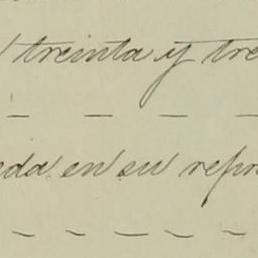 treinta y tre
da en su repr